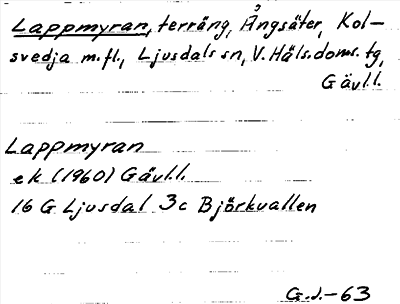 Lappmyran, terräng, Ångsäter, Kol-
svedja m.fl., Ljusdals sn, V. Häls. doms. tg,
Gävl.l.
Lappmyran
ek (1960) Gävl.l.
16 G Ljusdal 3c Björkvallen
G.J.-63